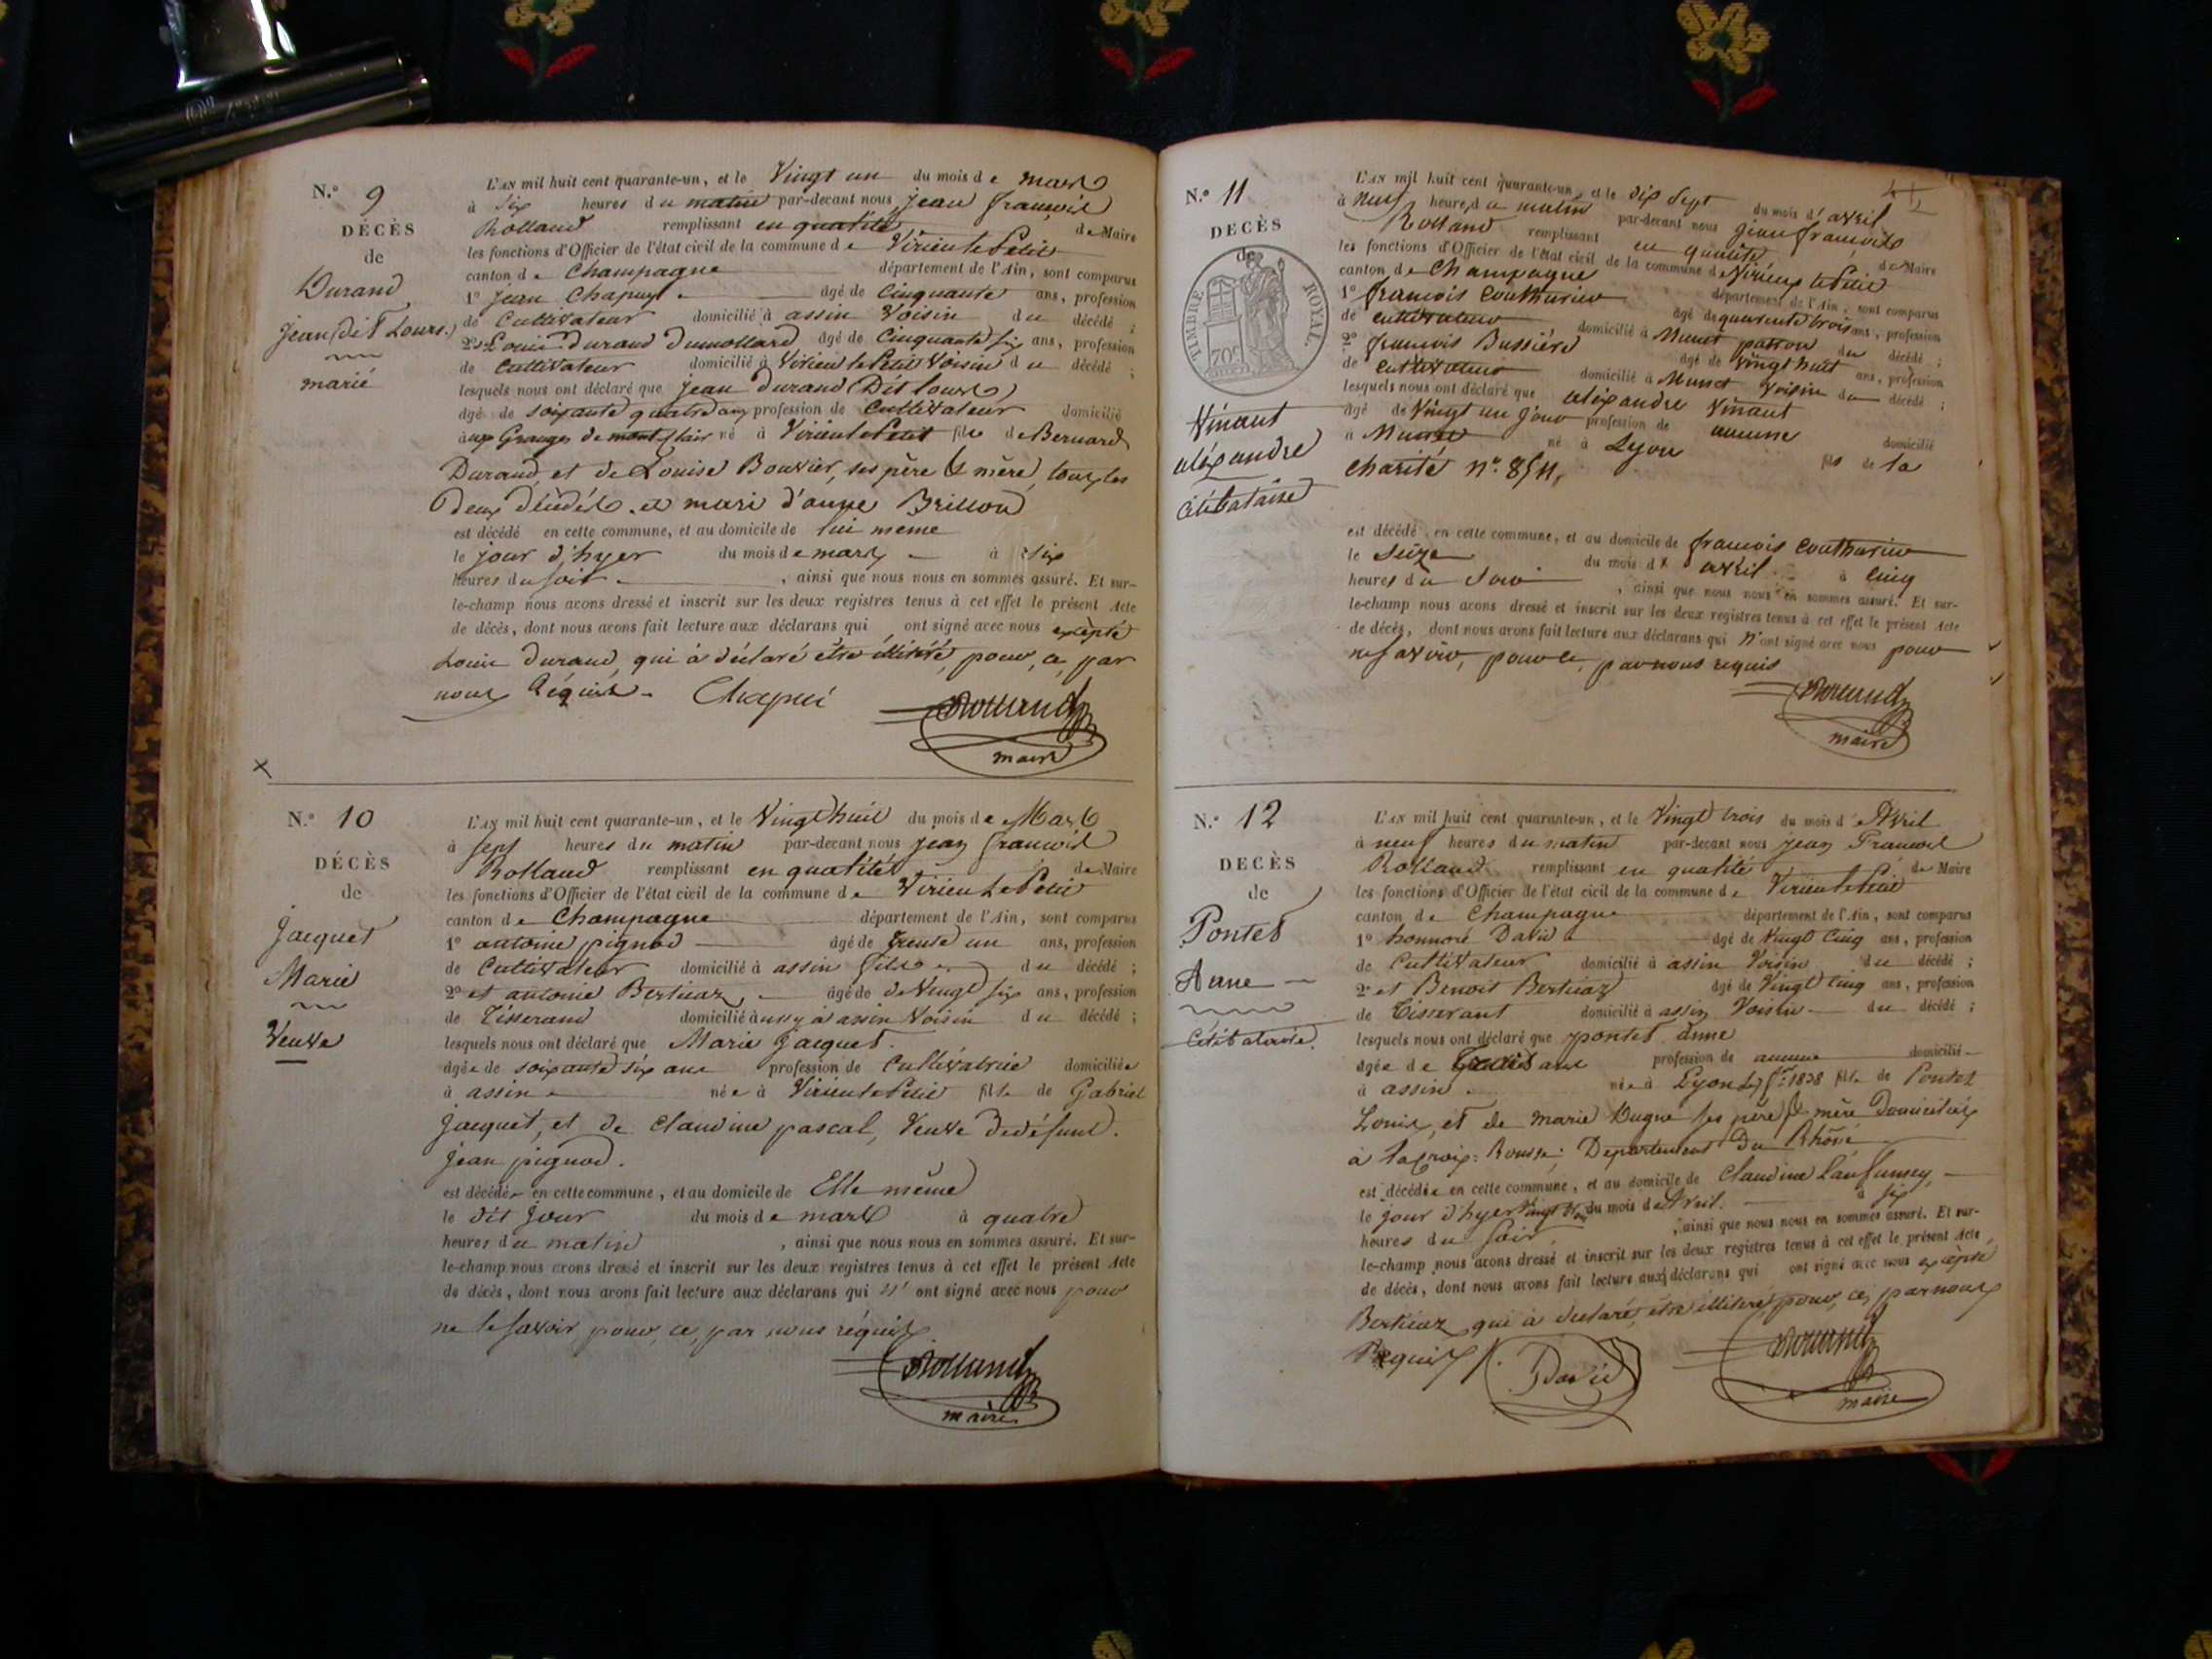 N.º 9
DÉCÈS
de
Durand
Jean (dit Lours.)
marié
L'AN mil huit cent quarante-un, et le Vingt un du mois de mars
à six heures du matin par-devant nous jean françois
Rolland remplissant en qualité de Maire
les fonctions d'Officier de l'état civil de la commune de Virieu le Petit
canton de Champagne département de l'Ain, sont comparus
1º jean Chapuy âgé de Cinquante ans, profession
de Cultivateur domicilié à assin Voisin du décédé ;
2º Louis Durand Dumollard âgé de Cinquante six ans, profession
de Cultivateur domicilié à Virieu le Petit Voisin du décédé ;
lesquels nous ont déclaré que jean Durand (Dit lours)
âgé de soixante quatre ans profession de Cultivateur domicilié
aux Granges de montclair né à Virieu le Petit fils de Bernard
Durand, et de Louise Bouvier, ses père & mère, tous les
deux décédés. et mari d'anne Brillon
est décédé en cette commune, et au domicile de lui meme
le jour d'hyer du mois de mars à Six
heures du soir , ainsi que nous nous en sommes assuré. Et sur-
le-champ nous avons dressé et inscrit sur les deux registres tenus à cet effet le présent Acte
de décès, dont nous avons fait lecture aux déclarans qui ont signé avec nous excèpté
Louis Durand, qui à déclaré être illitéré, pour, ce, par
nous Réquis. Chapui Rolland
maire
N.º 10
DÉCÈS
de
Jacquet
Marie
Veuve
L'AN mil huit cent quarante-un, et le Vingt huit du mois de Mars
à sept heures du matin par-devant nous jean françois
Rolland remplissant en qualité de Maire
les fonctions d'Officier de l'état civil de la commune de Virieu Le Petit
canton de Champagne département de l'Ain, sont comparus
1º antoine pignod âgé de trente un ans, profession
de Cultivateur domicilié à assin fils du décédé ;
2º et antoine Bertieaz âgé de de Vingt six ans, profession
de Tisserand domicilié aussy à assin Voisin du décédé ;
lesquels nous ont déclaré que Marie Jacquet.
âgée de soixante six ans profession de Cultivatrice domiciliée
à assin née à Virieu le Petit fille de Gabriel
Jacquet, et de Claudine pascal, Veuve de défunt.
Jean pignod.
est décédée en cette commune, et au domicile de Elle même
le dit Jour du mois de mars à quatre
heures du matin , ainsi que nous nous en sommes assuré. Et sur-
le-champ nous avons dressé et inscrit sur les deux registres tenus à cet effet le présent Acte
de décès, dont nous avons fait lecture aux déclarans qui n' ont signé avec nous pour
ne le savoir, pour, ce, par nous réquis
Rolland
maire
N.º 11
DECÈS
de
TIMBRE ROYAL
70c
Vinant
aléxandre
Célibataire
L'AN mil huit cent quarante-un, et le dix sept du mois d'avril
à neuf heures du matin par-devant nous jean françois
Rolland remplissant en qualité de Maire
les fonctions d'Officier de l'état civil de la commune de Virieu le Petit
canton de Champagne département de l'Ain, sont comparus
1º françois Couthurier âgé de quarente trois ans, profession
de cultivateur domicilié à Munet patron du décédé ;
2º françois Bussière âgé de Vingt huit ans, profession
de Cultivateur domicilié à Munet Voisin du décédé ;
lesquels nous ont déclaré que aléxandre Vinant
âgé de Vingt un jour profession de aucune domicilié
à Munet né à Lyon fils de la
charité nº.
est décédé en cette commune, et au domicile de françois Couthurier
le Seize du mois d'avril à Cinq
heures du Soir , ainsi que nous nous en sommes assuré. Et sur-
le-champ nous avons dressé et inscrit sur les deux registres tenus à cet effet le présent Acte
de décès, dont nous avons fait lecture aux déclarans qui n'ont signé avec nous pour
ne savoir, pour ce, par nous requis
Rolland
maire
N.º 12
DECÈS
de
Pontet
Anne
Célibataire.
L'AN mil huit cent quarante-un, et le Vingt trois du mois d'Avril
à neuf heures du matin par-devant nous jean François
Rolland remplissant en qualité de Maire
les fonctions d'Officier de l'état civil de la commune de Virieu le Petit
canton de Champagne département de l'Ain, sont comparus
1º honnoré David âgé de Vingt Cinq ans, profession
de Cultivateur domicilié à assin Voisin du décédé ;
2º et Benoit Bertieaz âgé de Vingt Cinq ans, profession
de Tisserant domicilié à assin Voisin du décédé ;
lesquels nous ont déclaré que pontet anne
âgée de trois ans profession de aucune domicilié
à assin née à Lyon 1838 fille de Pontet
Louis, et de marie Dugne ses père & mère Domiciliés
à la Croix-Rousse; Departement Du Rhône
est décédée en cette commune, et au domicile de Claudine
le jour d'hyer du mois d'Avril. à six
heures du soir , ainsi que nous nous en sommes assuré. Et sur-
le-champ nous avons dressé et inscrit sur les deux registres tenus à cet effet le présent Acte
de décès, dont nous avons fait lecture aux déclarans qui ont signé avec nous excèpté
Bertieaz, qui à déclaré, être illitéré, pour, ce, par nous
Requis. David Rolland
maire